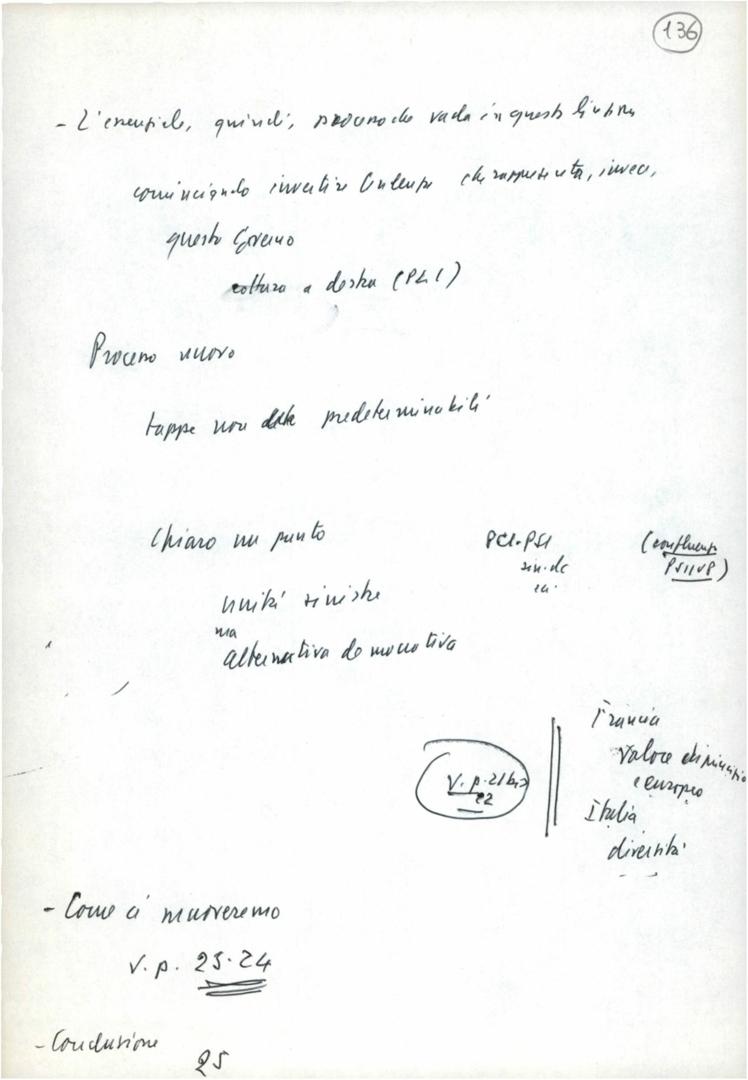 136
- L'essenziale, quindi, è che vada in questa
cominciando invertire che rappresenta, invece,
questo Governo
rottura a destra (PLI)
Processo nuovo
tappe non predeterminabili
Chiaro un punto
PCI-PSI
sin. dc
(confluenza
PSIUP)
unità sinistre
ma
alternativa democratica
V. p. 21 bis
22
Francia
valore di principio
e europeo
Italia
diversità
- Come ci muoveremo
V. p. 23-24
- Conclusione
25